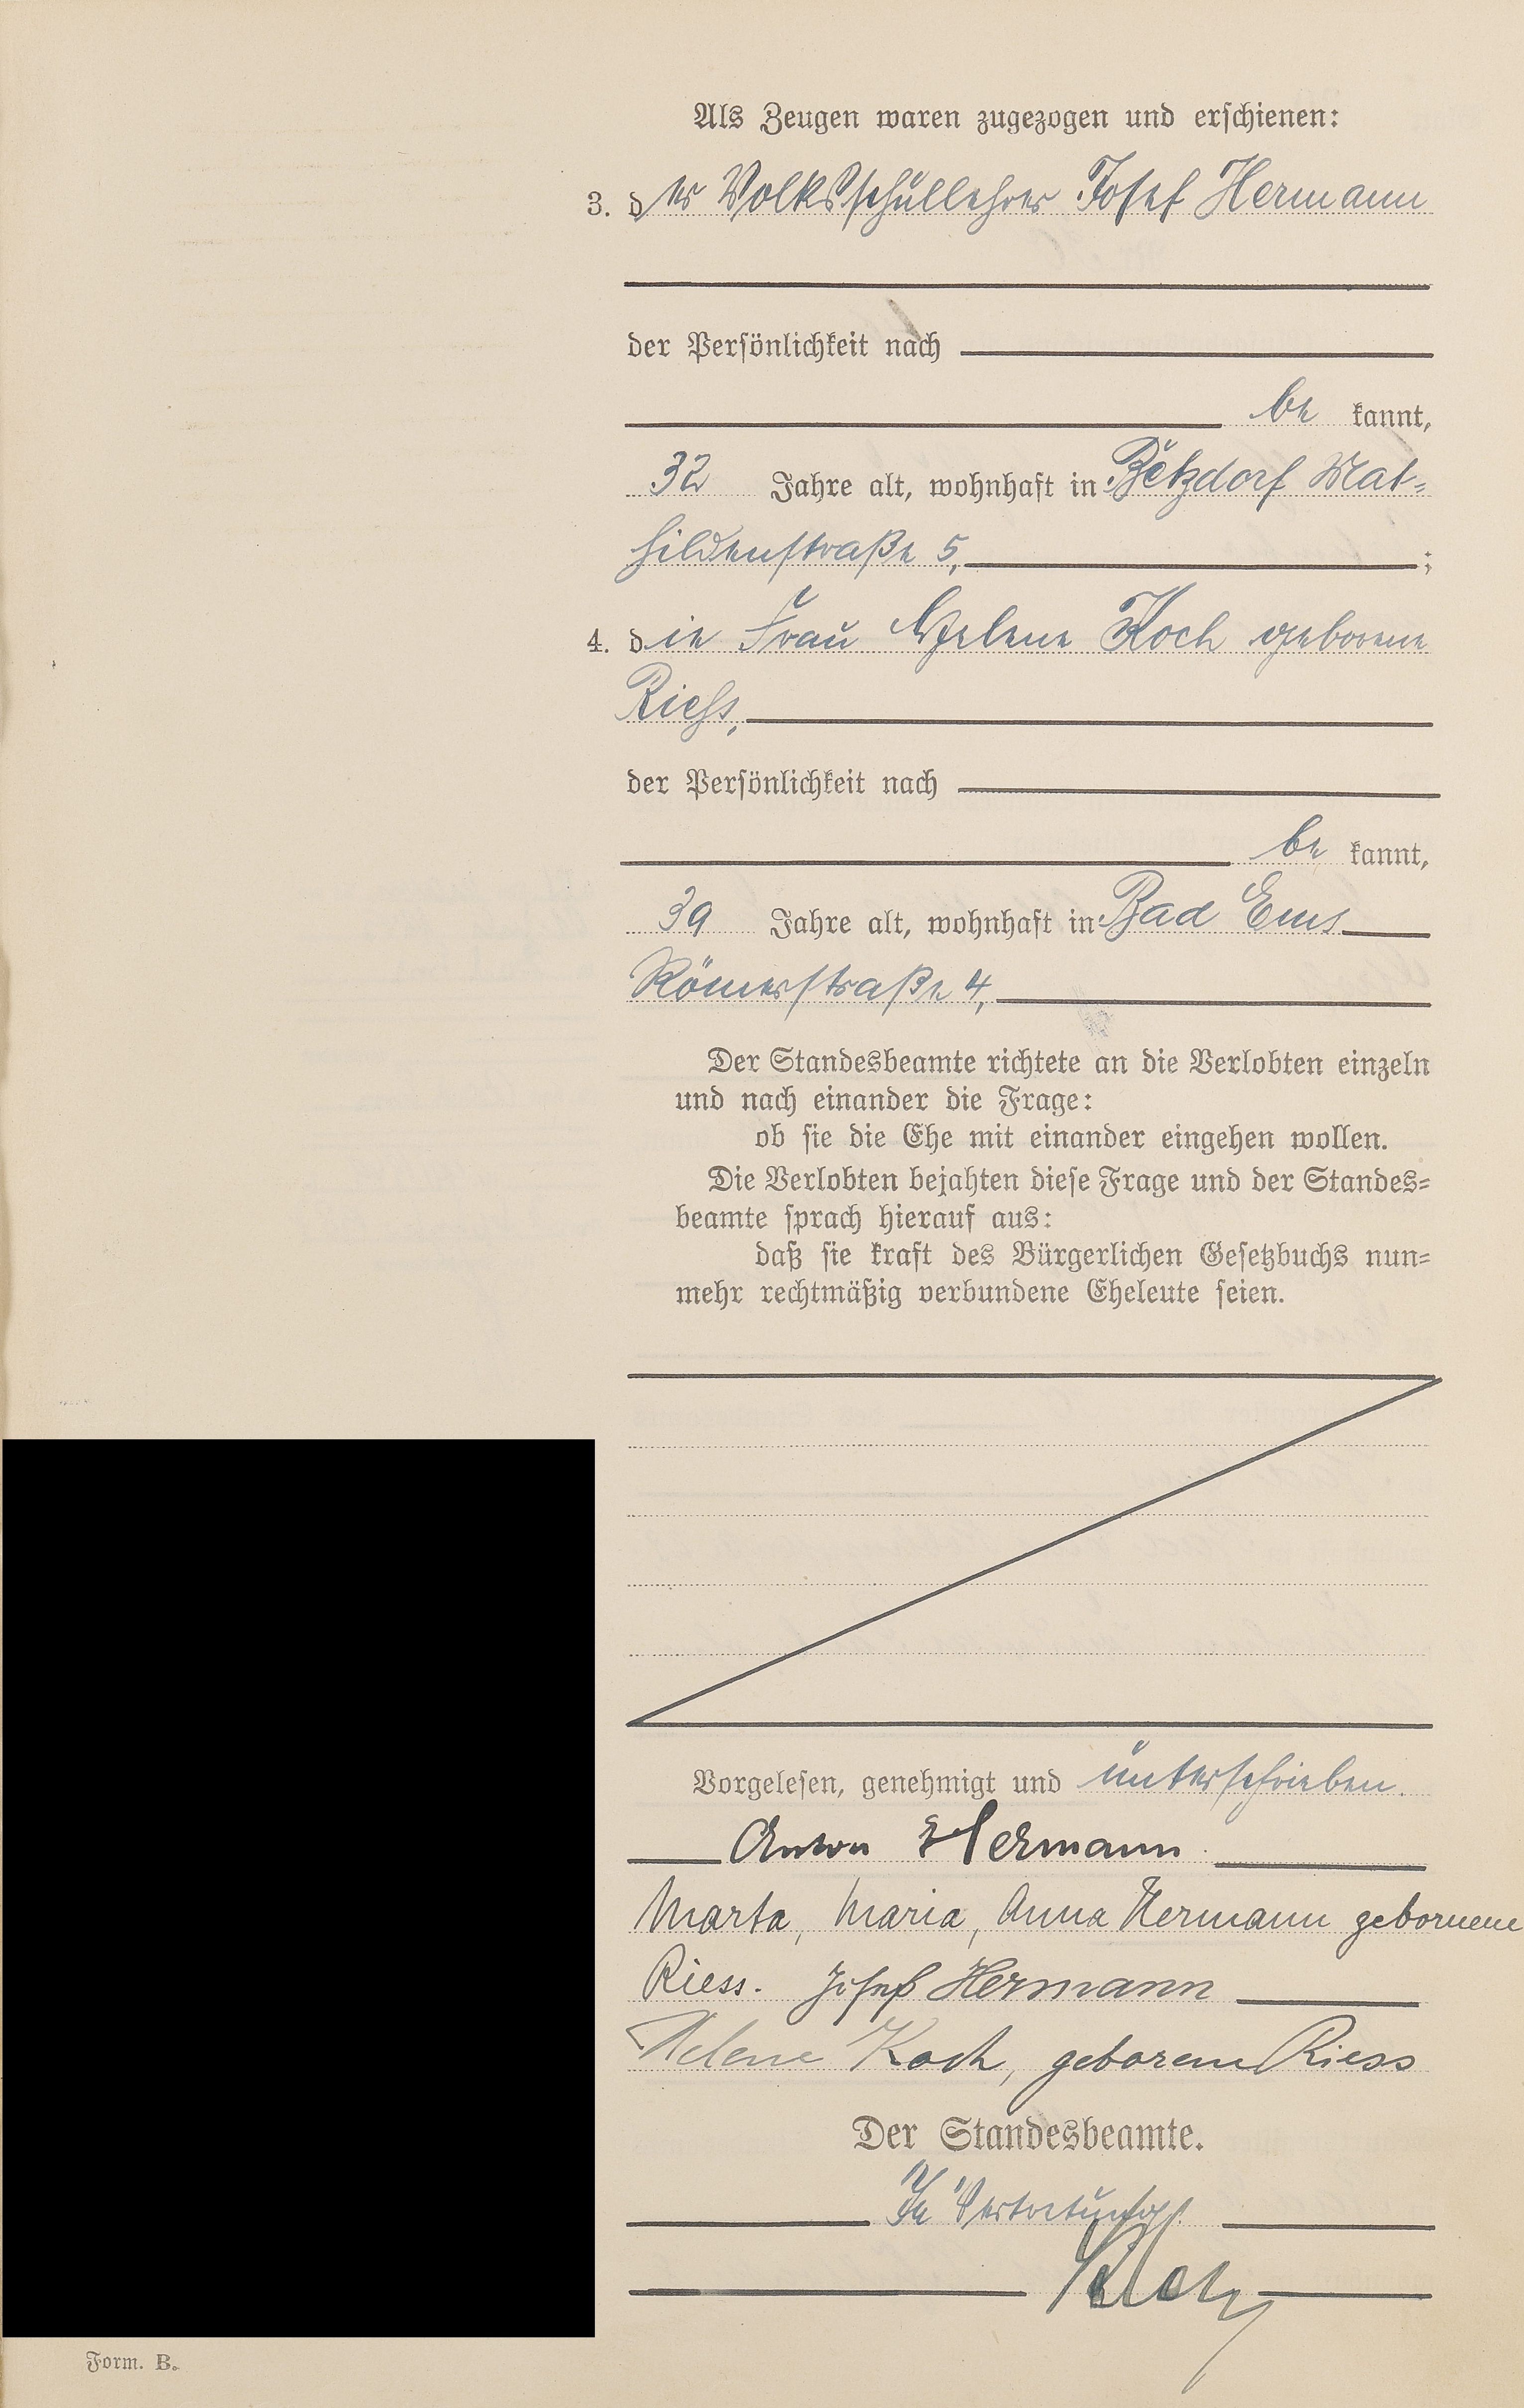 Als Zeugen waren zugezogen und erschienen:
3. der Volksschullehrer Josef Hermann
der Persönlichkeit nach
be kannt,
32 Jahre alt, wohnhaft in Betzdorf Mat-
hildenstraße 5, ;
4. die Frau Helene Koch geborene
Riess,
der Persönlichkeit nach
be kannt,
39 Jahre alt, wohnhaft in Bad Ems
Römerstraße 4,
Der Standesbeamte richtete an die Verlobten einzeln
und nach einander die Frage:
ob sie die Ehe mit einander eingehen wollen.
Die Verlobten bejahten diese Frage und der Standes-
beamte sprach hierauf aus:
daß sie kraft des Bürgerlichen Gesetzbuchs nun-
mehr rechtmäßig verbundene Eheleute seien.
Vorgelesen, genehmigt und unterschrieben.
Anton Hermann.
Marta, Maria, Anna Hermann gebornene
Riess. Josef Hermann
Helene Koch, geborene Riess
Der Standesbeamte.
In Vertretung.
Form. B.